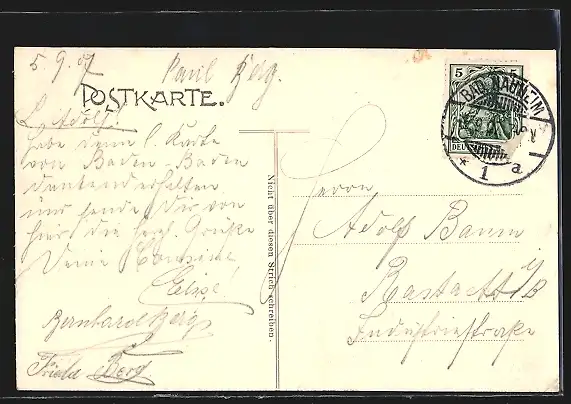 5.9.07
Paul Berg.
POSTKARTE.
L. Adolf!
habe Deine l. Karte
von Baden-Baden
dankend erhalten
und sende Dir von
hier die herzl. Grüße
Deine Cousine
Elise!
Bernhard Berg
Frieda Berg
Nicht über diesen Strich schreiben.
5 5
BAD NAUHEIM
* 1 a
Herrn
Adolf Baum
Rastatt i/B
Industriestraße